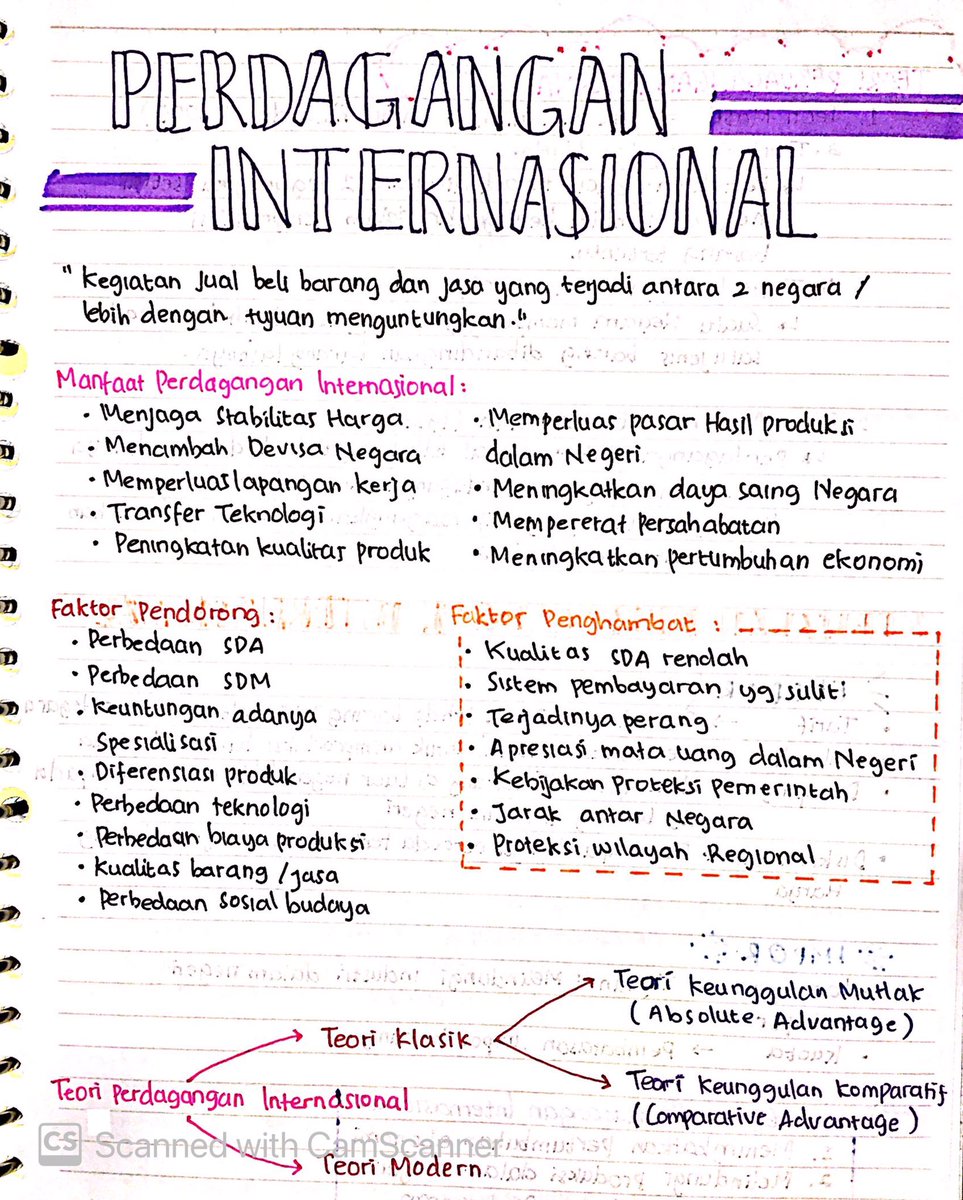 PERDAGANGAN
INTERNASIONAL
" kegiatan jual beli barang dan jasa yang terjadi antara 2 negara /
lebih dengan tujuan menguntungkan."
Manfaat Perdagangan Internasional:
• Menjaga Stabilitas Harga
• Menambah Devisa Negara
• Memperluas lapangan kerja
• Transfer Teknologi
• Peningkatan kualitas produk
• Memperluas pasar Hasil produksi
dalam Negeri
• Meningkatkan daya saing Negara
• Mempererat persahabatan
• Meningkatkan pertumbuhan ekonomi
Faktor Pendorong:
• Perbedaan SDA
• Perbedaan SDM
• Keuntungan adanya
Spesialisasi
• Diferensiasi produk
• Perbedaan teknologi
• Perbedaan biaya produksi
• Kualitas barang /jasa
• Perbedaan sosial budaya
Faktor Penghambat :
• Kualitas SDA rendah
• Sistem pembayaran yg sulit
• Terjadinya perang
• Apresiasi mata uang dalam Negeri
• Kebijakan Proteksi Pemerintah
• Jarak antar Negara
• Proteksi wilayah Regional
Teori Perdagangan Internasional
Teori Klasik
Teori Keunggulan Mutlak
(Absolute Advantage)
Teori Keunggulan Komparatif
(Comparative Advantage)
Teori Modern
CS Scanned with CamScanner